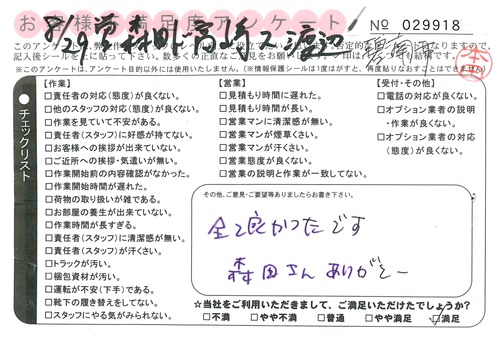 お客様満足度アンケート
№ 029918
8/29 営 森田 ド 高崎 ス 渡辺
雲南市
本
記入後シールを上に貼って下さい。
※このアンケートは、アンケート目的以外には使用いたしません。（※情報保護シールは1度はがすと、再度貼りなおすことはできません。）
チェックリスト
【作業】
□責任者の対応（態度）が良くない。
□他のスタッフの対応（態度）が良くない。
□作業を見ていて不安がある。
□責任者（スタッフ）に好感が持てない。
□お客様への挨拶が出来ていない。
□ご近所への挨拶・気遣いが無い。
□作業開始前の内容確認がなかった。
□作業開始時間が遅れた。
□荷物の取り扱いが雑である。
□お部屋の養生が出来ていない。
□作業時間が長すぎる。
□責任者（スタッフ）に清潔感が無い。
□責任者（スタッフ）が汗くさい。
□トラックが汚い。
□梱包資材が汚い。
□運転が不安（下手）である。
□靴下の履き替えをしてない。
□スタッフにやる気がみられない。
【営業】
□見積もり時間に遅れた。
□見積もり時間が長い。
□営業マンに清潔感が無い。
□営業マンが煙草くさい。
□営業マンが汗くさい。
□営業態度が良くない。
□営業の説明と作業が一致してない。
【受付・その他】
□電話の対応が良くない。
□オプション業者の説明
・作業が良くない。
□オプション業者の対応
（態度）が良くない。
その他、ご意見・ご要望等ありましたらお書き下さい。
全て良かったです
森田さんありがとー
☆当社をご利用いただきまして、ご満足いただけたでしょうか?
□不満 □やや不満 □普通 □やや満足 □満足